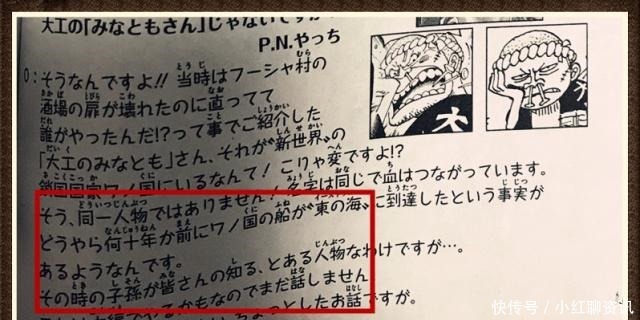 大工の「みなともさん」じゃないですか
P.N.やっち
O：そうなんですよ!! 当時はフーシャ村の
酒場の扉が壊れたのに直ってて
誰がやったんだ!?って事でご紹介した
「大工のみなとも」さん、それが“新世界”の
鎖国国家ワノ国にいるなんて! こりゃ変ですよ!?
そう、同一人物ではありません! 名字は同じで血はつながっています。
どうやら何十年か前にワノ国の船が“東の海”に到達したという事実が
あるようなんです。
その時の子孫が皆さんの知る、とある人物なわけですが…。
やるかもなのでまだ話しません
ちょっとしたお話ですが。
大
快传号/小红聊资讯